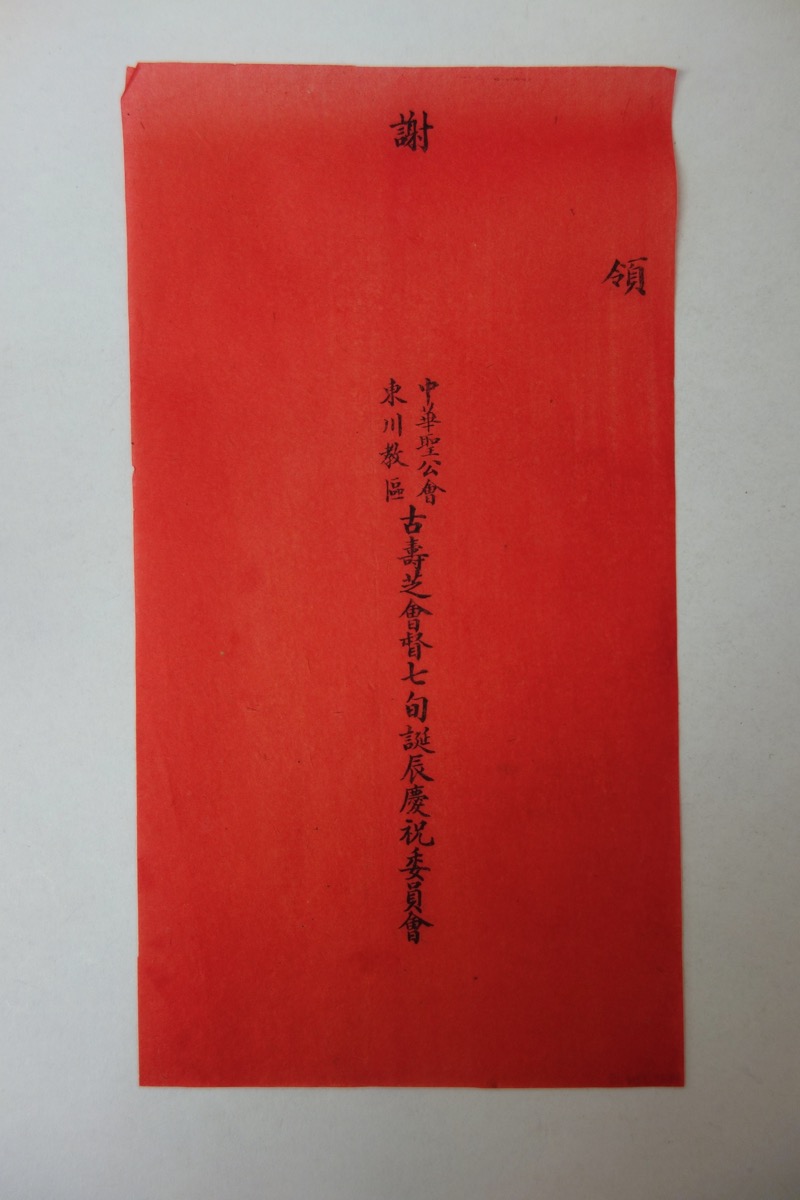 領
謝
中華聖公會
東川教區
古壽芝會督七旬誕辰慶祝委員會